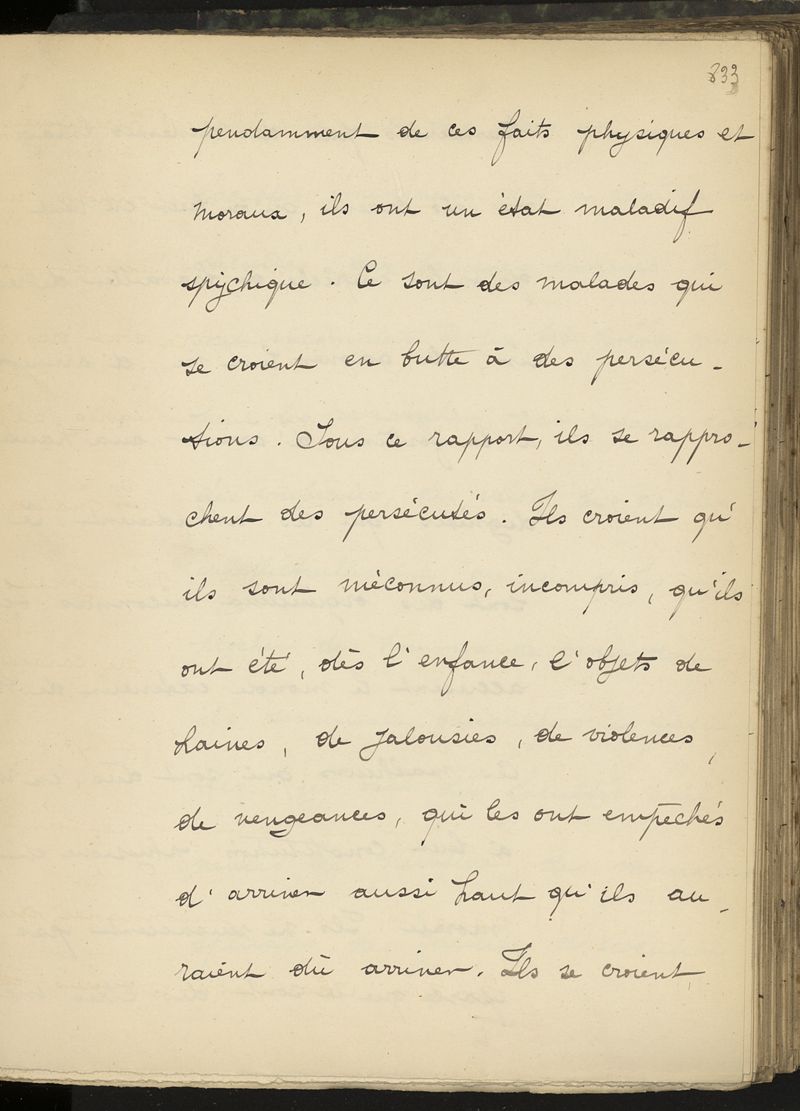 833
pendamment de ces faits physiques et
moraux, ils ont un état maladif
spychique. Ce sont des malades qui
se croient en butte à des persécu-
tions. Sous ce rapport, ils se rappro-
chent des persécutés. Ils croient qu'
ils sont méconnus, incompris, qu'ils
ont été, dès l'enfance, l'objets de
haines, de jalousies, de violences,
de vengeances, qui les ont empêchés
d'arriver aussi haut qu'ils au-
raient dû arriver. Ils se croient